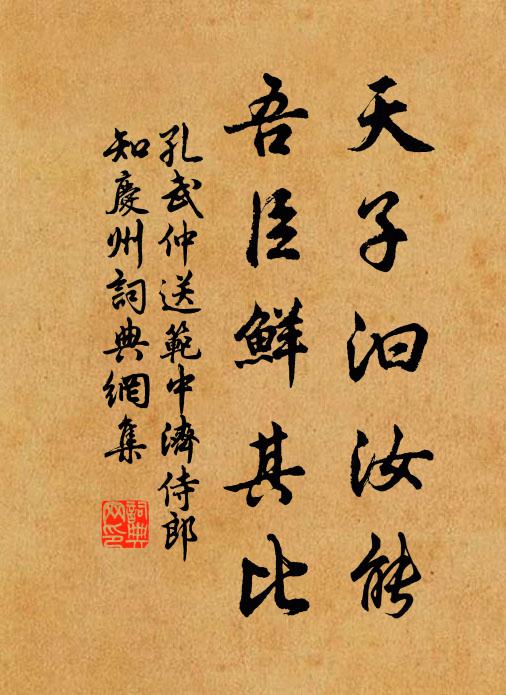 天子汩汝能
吾臣鮮其比
孔武仲送範中濟侍郎
知慶州詞典網集
詞典
网印